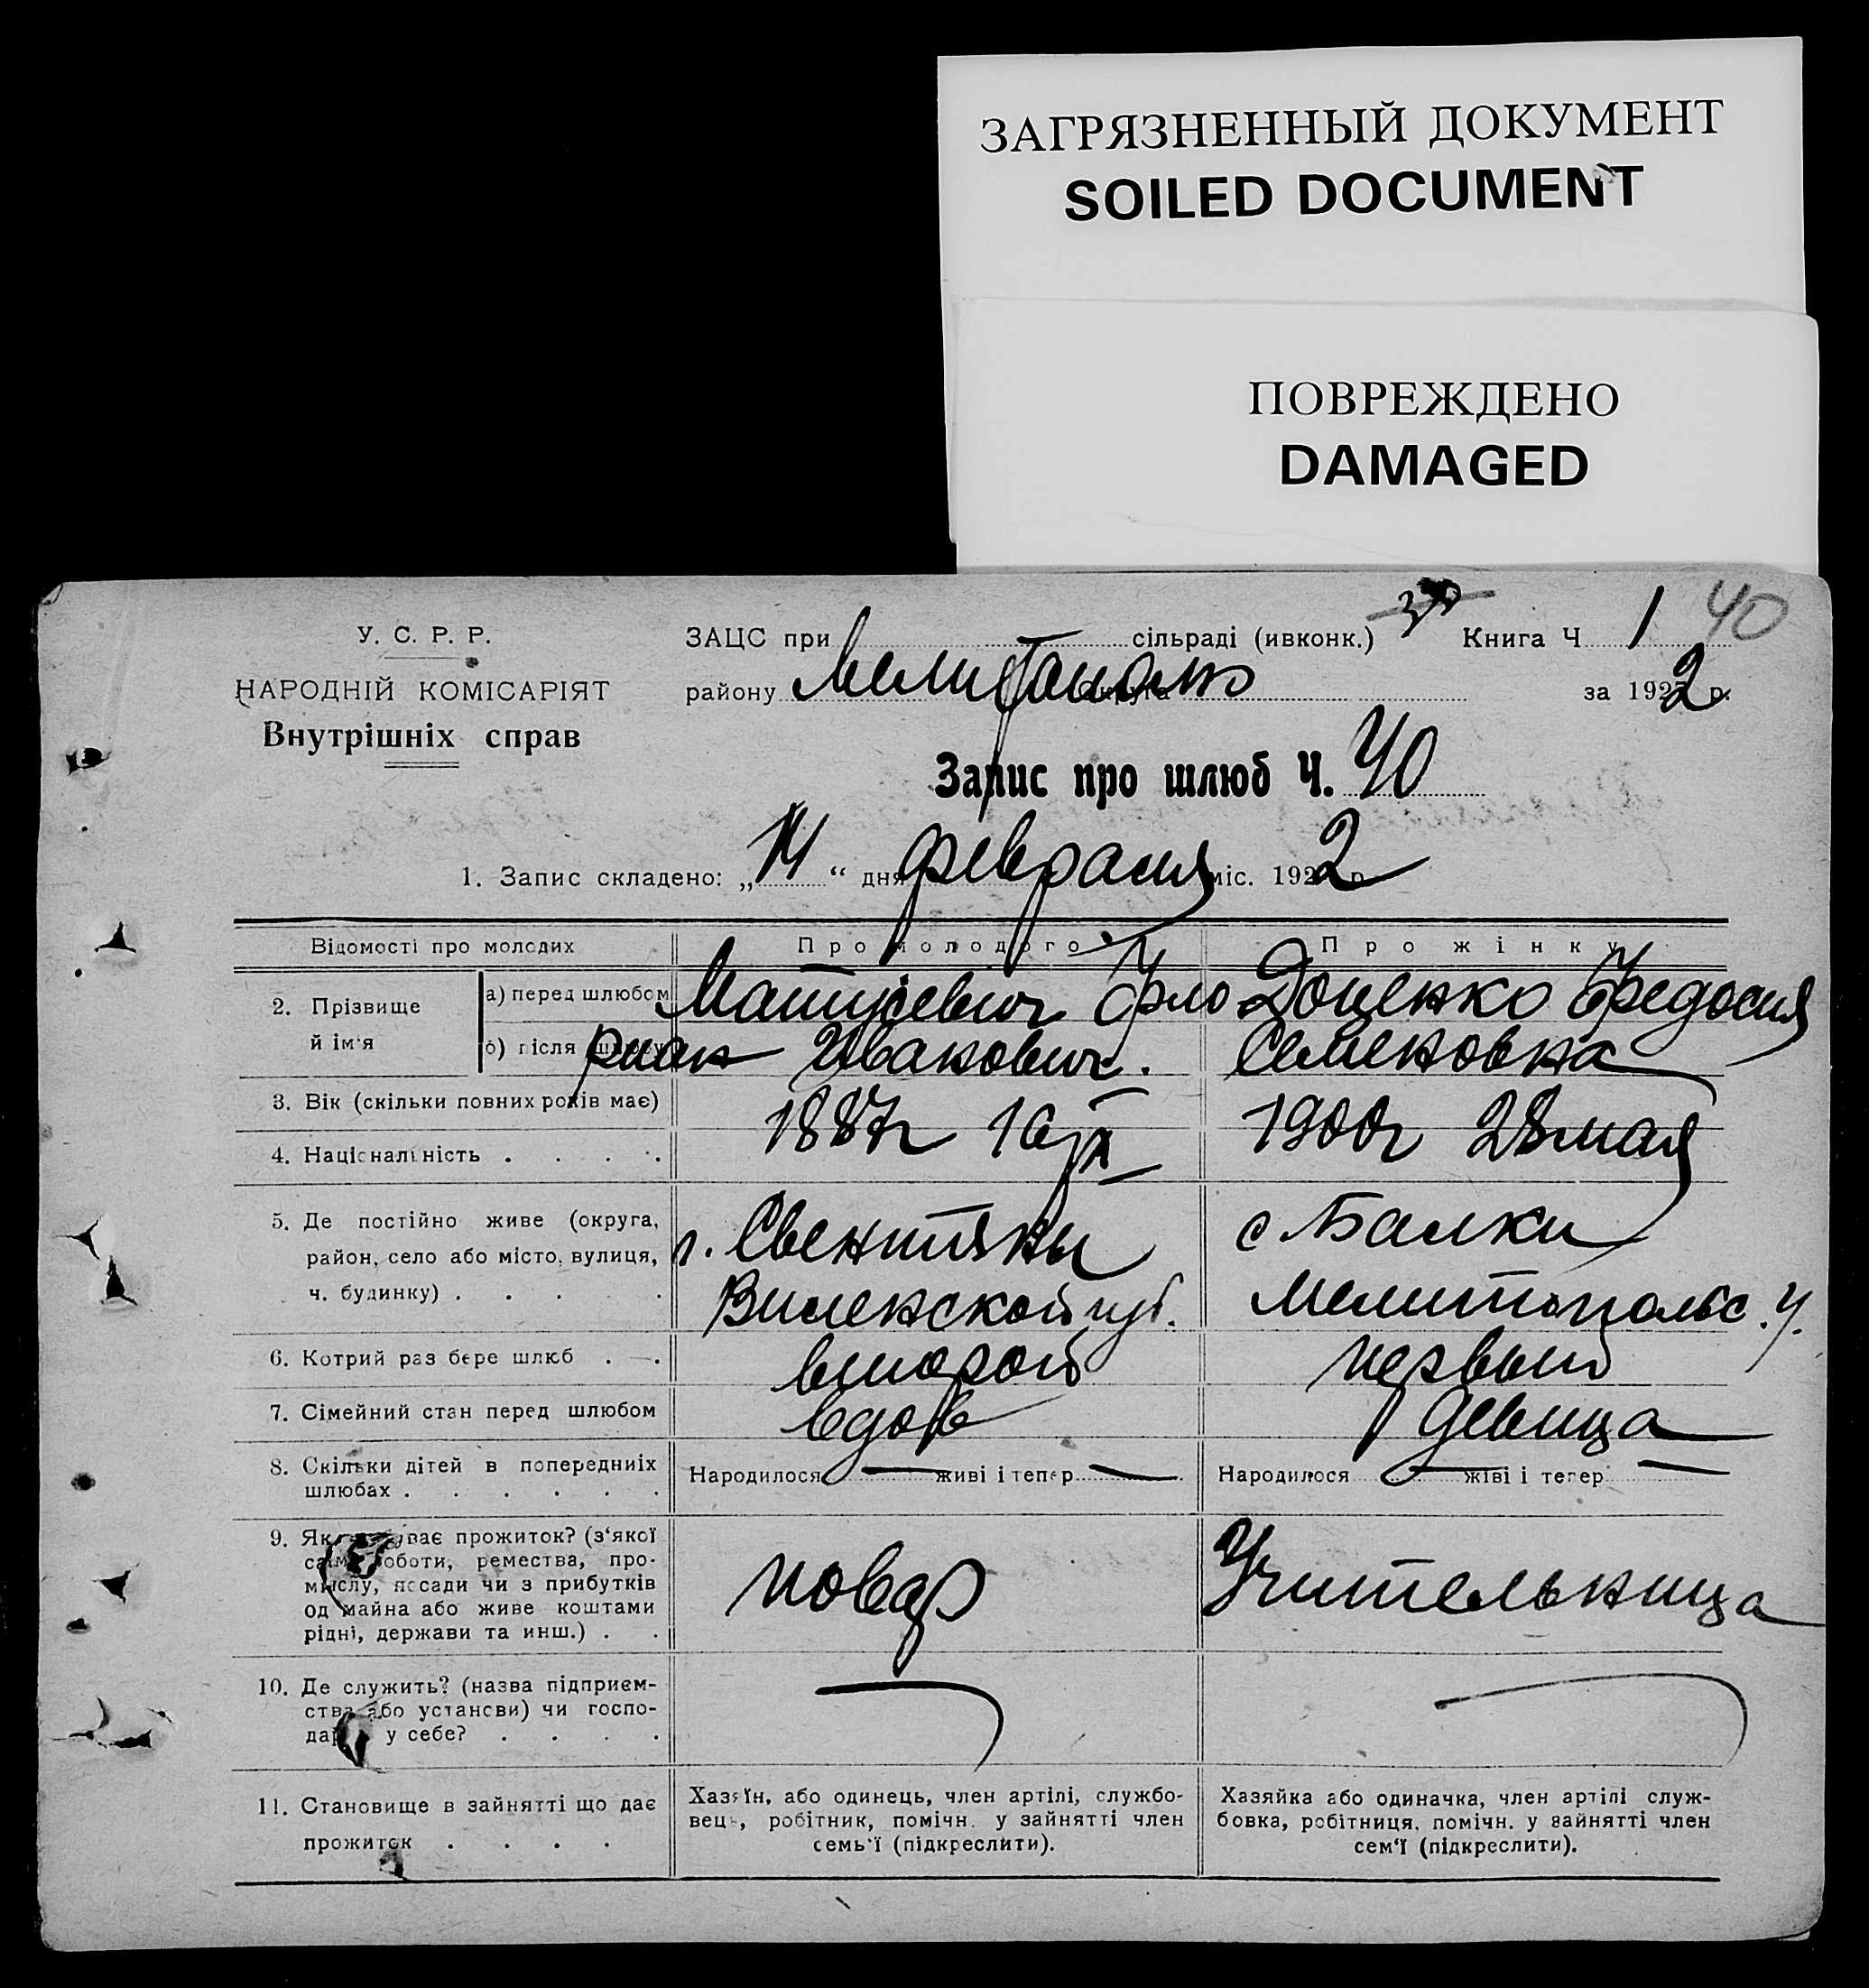 ЗАГРЯЗНЕННЫЙ ДОКУМЕНТ
SOILED DOCUMENT
ПОВРЕЖДЕНО
DAMAGED
У. С. Р. Р.
НАРОДНІЙ КОМІСАРІЯТ
Внутрішніх справ
ЗАЦС при сільраді (ивконк.) Книга Ч 1 40
району Мелитополь округа за 1922 р.
Запис про шлюб Ч. 40
1. Запис складено: „14“ дня февраля міс. 1922 р.
Відомості про молодих Про молодого Про жінку
2. Прізвище й ім'я а) перед шлюбом Матусевич Фло Доценко Федосия
б) після шлюбу риан Иванович. Семеновна
3. Вік (скільки повних років має) 1887г 1900г 28 мая
4. Національність . . . .
5. Де постійно живе (округа, г. Свентяны с Балки
район, село або місто, вулиця,
ч. будинку) . . . . Виленской губ. Мелитопольс. у.
6. Котрий раз бере шлюб . . второй первый
7. Сімейний стан перед шлюбом вдов девица
8. Скільки дітей в попередниіх Народилося — живі і тепер — Народилося — живі і тепер —
шлюбах . . . . . .
9. Як ває прожиток? (з'якої
саме роботи, ремества, про-
мислу, посади чи з прибутків повар Учительница
од майна або живе коштами
рідні, держави та инш.) . .
10. Де служить? (назва підприєм-
ства або установи) чи госпо-
дар у себе? . . . .
11. Становище в зайнятті що дає
прожиток . . . .
Хазяїн, або одинець, член артілі, службо-
вець, робітник, помічн. у зайнятті член
семь'ї (підкреслити).
Хазяйка або одиначка, член артілі служ-
бовка, робітниця, помічн. у зайнятті член
сем'ї (підкреслити).